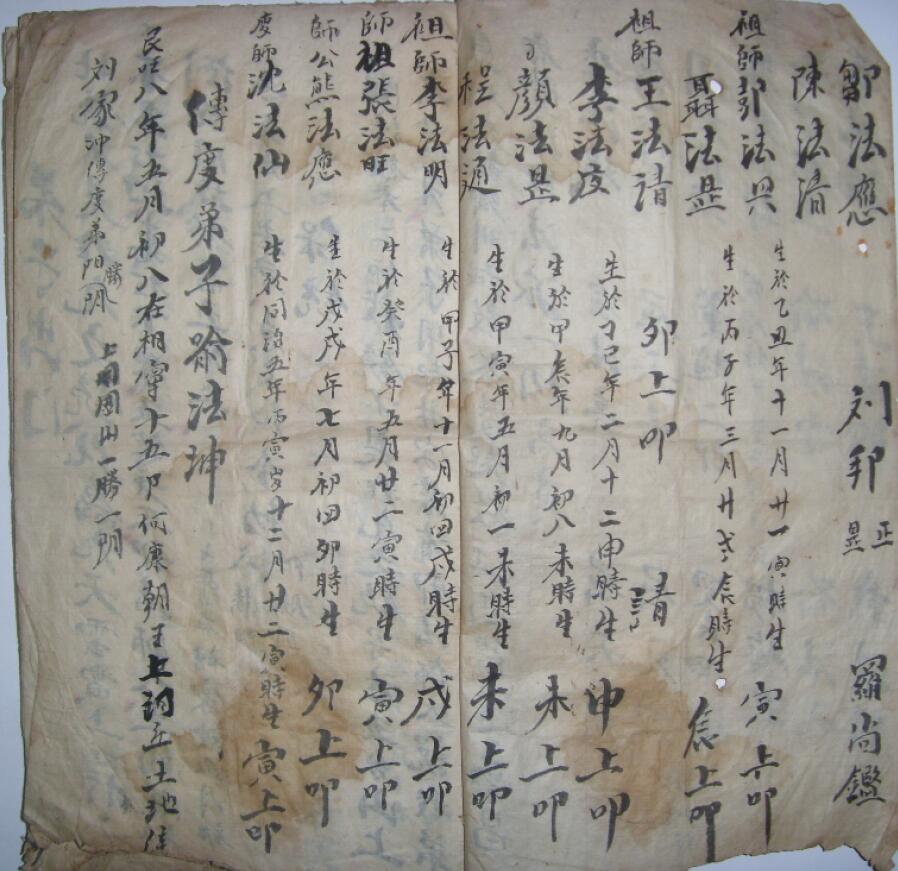 鄒法應 刘邦 正 昰 羅尚鑑
陳法清
祖師 郭法兴 生於乙丑年十一月廿一寅時生 寅上卯
聶法昰 生於丙子年三月廿弍辰時生 辰上卯
祖師 王法請 卯上卯 請
李法度 生於丁巳年二月十二申時生 申上卯
顏法昰 生於甲辰年九月初八未時生 未上卯
程法通 生於甲寅年五月初一未時生 未上卯
祖師 李法明 生於甲子年十一月初四戌時生 戌上卯
師祖 張法旺 生於癸酉年五月廿二寅時生 寅上卯
師公 熊法應 生於戊戌年七月初四卯時生 卯上卯
度師 沈法仙 生於同治五年丙寅岁十二月廿二寅時生 寅上卯
傳度弟子喻法坤
民国八年五月初八在相寧十五 何康朝王上祠 土地
刘家冲傳度弟 勝 一勝一明